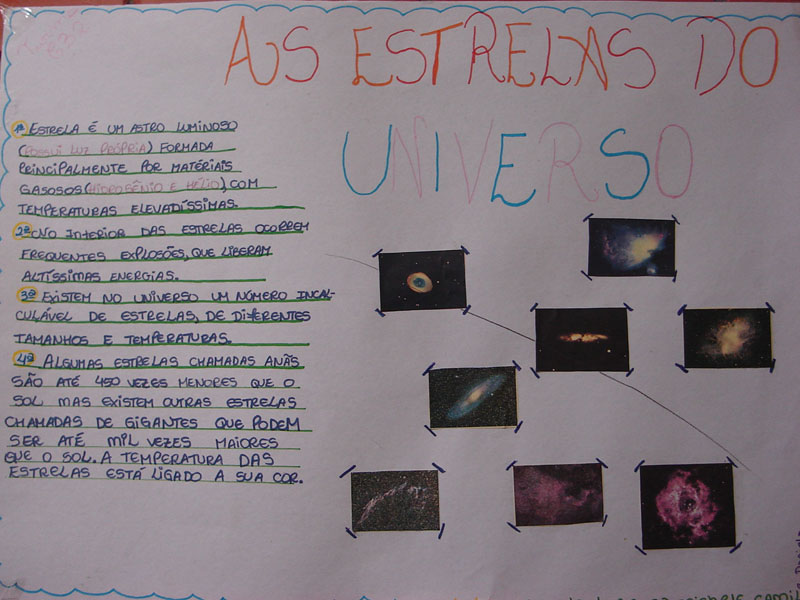 AS ESTRELAS DO
UNIVERSO
1ª ESTRELA É UM ASTRO LUMINOSO
(POSSUI LUZ PRÓPRIA) FORMADA
PRINCIPALMENTE POR MATÉRIAIS
GASOSOS (HIDROGÊNIO E HÉLIO) COM
TEMPERATURAS ELEVADÍSSIMAS.
2ª NO INTERIOR DAS ESTRELAS OCORREM
FREQUENTES EXPLOSÕES, QUE LIBERAM
ALTÍSSIMAS ENERGIAS.
3ª EXISTEM NO UNIVERSO UM NÚMERO INCAL-
CULÁVEL DE ESTRELAS, DE DIFERENTES
TAMANHOS E TEMPERATURAS.
4ª ALGUMAS ESTRELAS CHAMADAS ANÃS
SÃO ATÉ 450 VEZES MENORES QUE O
SOL MAS EXISTEM OUTRAS ESTRELAS
CHAMADAS DE GIGANTES QUE PODEM
SER ATÉ MIL VEZES MAIORES
QUE O SOL. A TEMPERATURA DAS
ESTRELAS ESTÁ LIGADO A SUA COR.